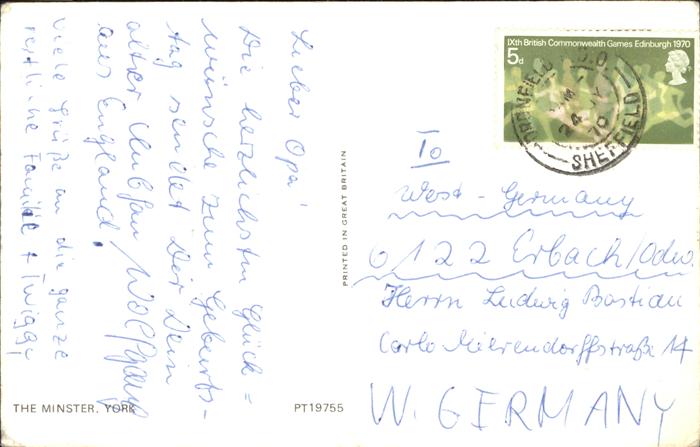 Lieber Opa!
Die herzlichsten Glück=
wünsche zum Geburts-
tag sendet Dir Dein
alter Clubfan Wolfgang
aus England.
Viele Grüße an die ganze
restliche Familie + Twiggy
THE MINSTER, YORK
PT19755
PRINTED IN GREAT BRITAIN
IXth British Commonwealth Games Edinburgh 1970
5d
SHEFFIELD
24
70
To
West-Germany
6122 Erbach/Odw.
Herrn Ludwig Bastian
Carlo Mierendorffstraße 14
W. GERMANY